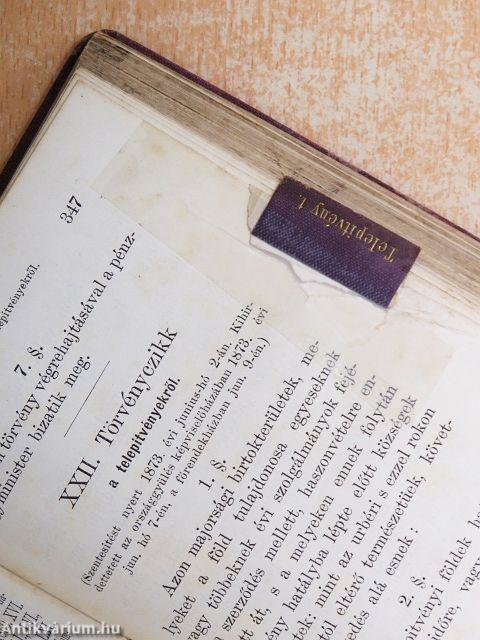 347
Telepítvény t.
lepítvényekről.
7. §.
törvény végrehajtásával a pénz-
yminister bizatik meg.
XXII. Törvényczikk
a telepítvényekről.
(Szentesítést nyert 1873. évi junius-hó 2-án. Kihir-
dettetett az országgyülés képviselőházában 1873. évi
jun. hó 7-én, a főrendekházban jun. 9-én.)
1. §.
Azon majorsági birtokterületek, me-
lyeket a föld tulajdonosa egyeseknek
vagy többeknek évi szolgálmányok fejé-
szerződés mellett, haszonvételre en-
ott át, s a melyeken ennek folytán
ény hatályba lépte előtt községek
tek; mint az urbéri s ezzel rokon
től eltérő természetüek, követ-
edés alá esnek:
2. §.
ítványi földek
előre, vagy
VI.
Antikvárium.hu